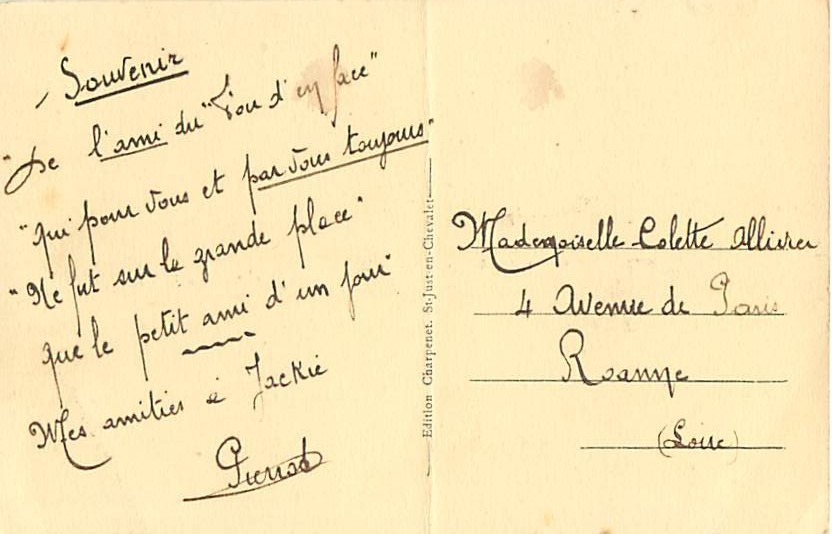 Souvenir
"De l'ami du "Fou d'en face"
"qui pour vous et par vous toujours"
"Ne fut sur la grande place"
que le petit ami d'un jour"
Mes amitiés à Jackie
Pierrot
Edition Charpenet. St-Just-en-Chevalet
Mademoiselle Colette Allirer
4 Avenue de Paris
Roanne
(Loire)